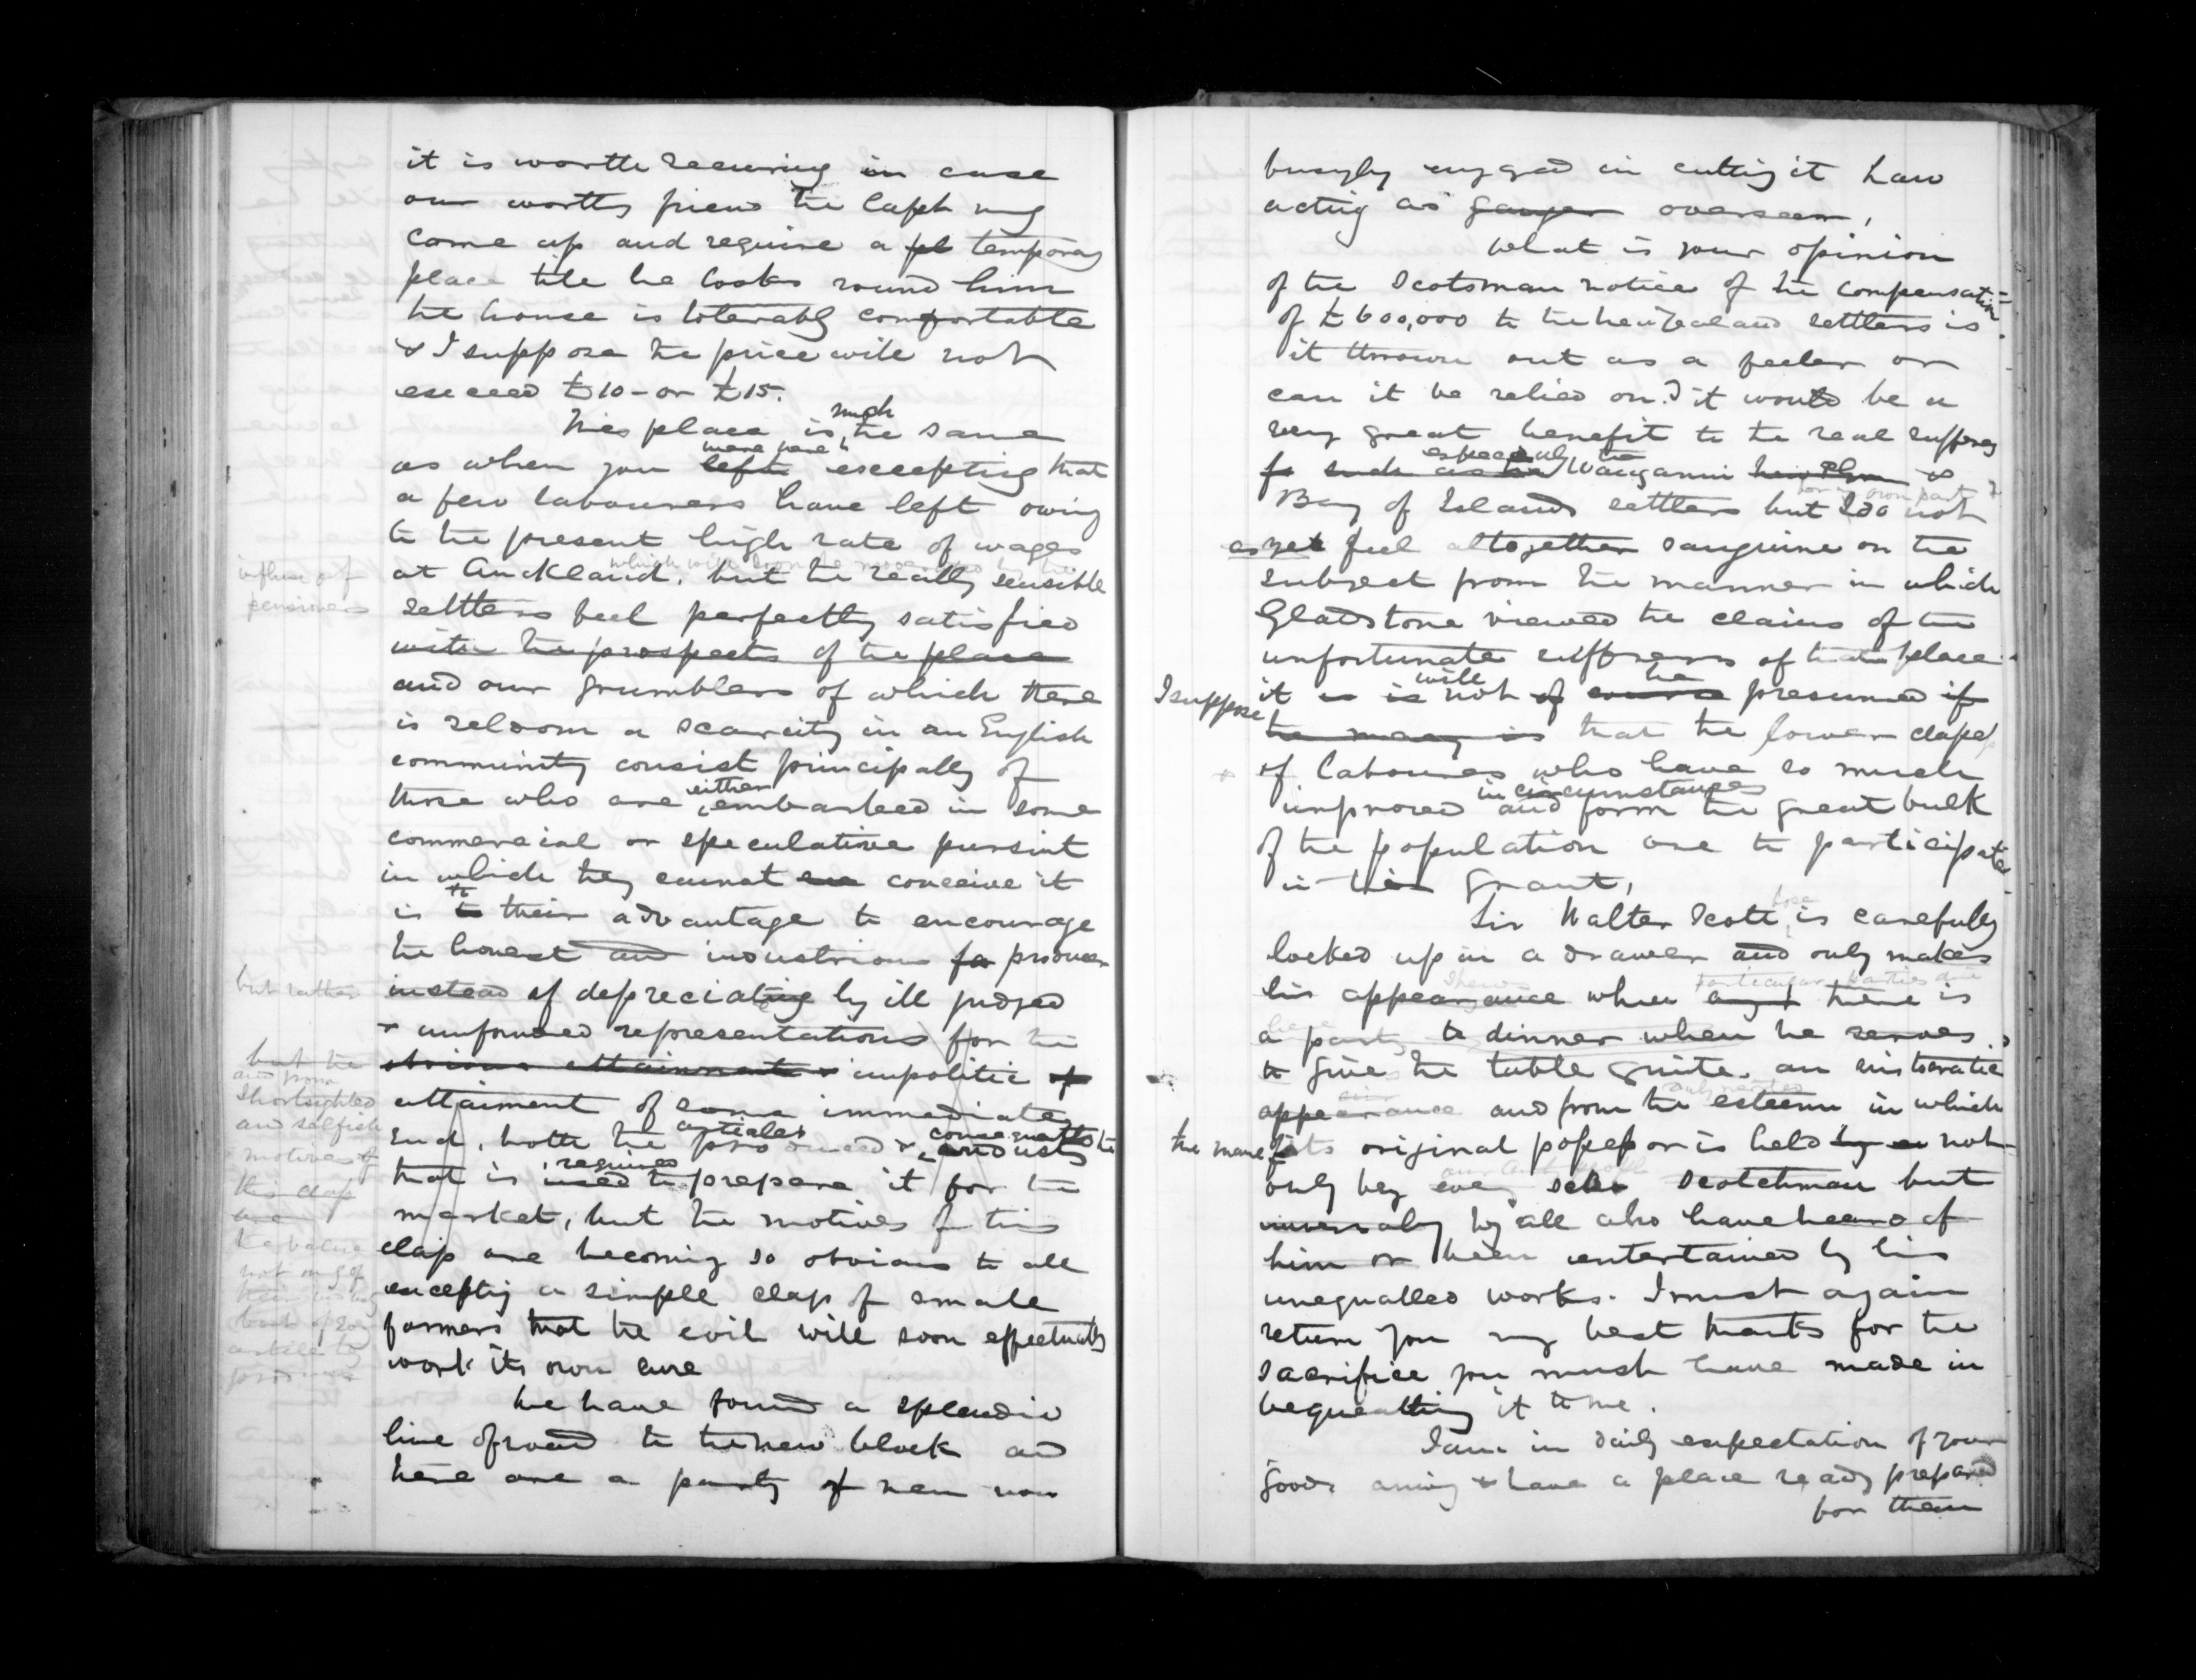 it is worth securing in case
our worthy friend the Capt may
come up and require a pl temporary
place till he looks round him
the house is tolerably comfortable
& I suppose the price will not
exceed £10 - or £15.
This place is much the same
as when you left were here excepting that
a few labourers have left owing
to the present high rate of wages
at Auckland, which will soon be moderated by the
influx of
pensioners
but the really sensible
settlers feel perfectly satisfied
with the prospects of the place
and our grumblers of which there
is seldom a scarcity in an English
community consist principally of
those who are either embarked in some
commercial or speculative pursuit
in which they cannot conceive it
is to their advantage to encourage
the honest and industrious fa producer
but rather
instead of depreciating by ill judged
& unfounded representations for the
obvious attainment & impolitic of
attaiment of some immediate
but the
and from
Shortsighted
and selfish
motives of
this class
the value
not only of
articles
producer
End, both the articles produced & and its consequently the
that is used required to prepare it for the
market, but the motives of this
class are becoming so obvious to all
excepting a simple class of small
farmers that the evil will soon effectually
work its own cure
We have found a splendid
line of road to the new block and
there are a party of men now
busyly engaged in cutting it Law
acting as ganger overseer,
What is your opinion
of the Scotsman notice of the compensation
of £600,000 to the New Zealand settlers is
it thrown out as a feeler or
can it be relied on? it would be a
very great benefit to the real sufferers
fo such as the especially the Wanganui New Plym &
Bay of Islands settlers but for my own part I do not
as yet feel altogether sanguine on the
subject from the manner in which
Gladstone viewed the claims of the
unfortunate sufferers of that place
I suppose it is is will not of course be presumed if
the money is that the lower class
of labourers who have so much
improved in circumstances and form the great bulk
of the population are to participate
in this grant,
Sir Walter Scott is carefully
locked up in a drawer and only makes
his appearance when any particular parties are there is
here
a party to dinner when he serves
to give the table quite an aristocratic
appearance and from the esteem in which
the name of its original possessor is held by a not
only by every Scotchman but
universally by all who have heard of
him or been entertained by his
unequalled works. I must again
return you my best thanks for the
sacrifice you must have made in
bequeathing it to me.
I am in daily expectation of your
goods arriving & have a place ready prepared
for them